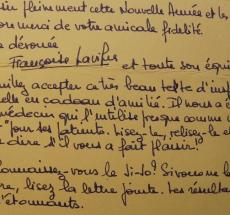 pleinement cette Nouvelle Année et les
merci de votre amicale fidélité
dévouée
Françoise et toute son équi
accepter ce très beau texte d'
en cadeau d'amitié. Il nous a é
médecin qui l'utilise presque comme u
"pour ses patients. Lisez-le, relisez-le et
dire s'il vous a fait plaisir!
Connaissez-vous le Si-Jo? Si vous ne
lisez la lettre jointe. Les résultats
d'étonnants.